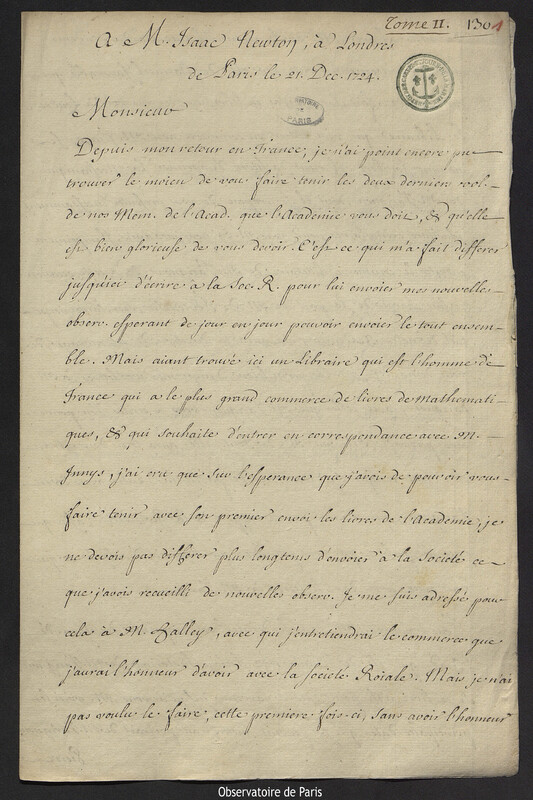 Tome II. 130
A M. Isaac Newton, à Londres
de Paris le 21. Dec. 1724.
PARIS
Monsieur
Depuis mon retour en France, je n'ai point encore pu
trouver le moien de vous faire tenir les deux dernien vol.
de nos Mem. de l'Acad. que l'Academie vous doit, & qu'elle
est bien glorieuse de vous devoir. C'est ce qui m'a fait differer
jusqu'ici d'écrire à la Soc. R. pour lui envoier mes nouvelles
observ. esperant de jour en jour pouvoir envoier le tout ensem-
ble. Mais aiant trouvé ici un Libraire qui est l'homme de
France qui a le plus grand commerce de livres de Mathemati-
ques, & qui souhaite d'entrer en correspondance avec M.
Innys, j'ai cru que sur l'esperance que j'avois de pouvoir vous
faire tenir avec son premier envoi les livres de l'Academie, je
ne devois pas differer plus longtems d'envoier à la Societé ce
que j'avois recueilli de nouvelles observ. Je me suis adressé pour
cela à M. Halley, avec qui j'entretiendrai le commerce que
j'aurai l'honneur d'avoir avec la societé Roiale. Mais je n'ai
pas voulu le faire, cette premiere fois-ci, sans avoir l'honneur
Observatoire de Paris